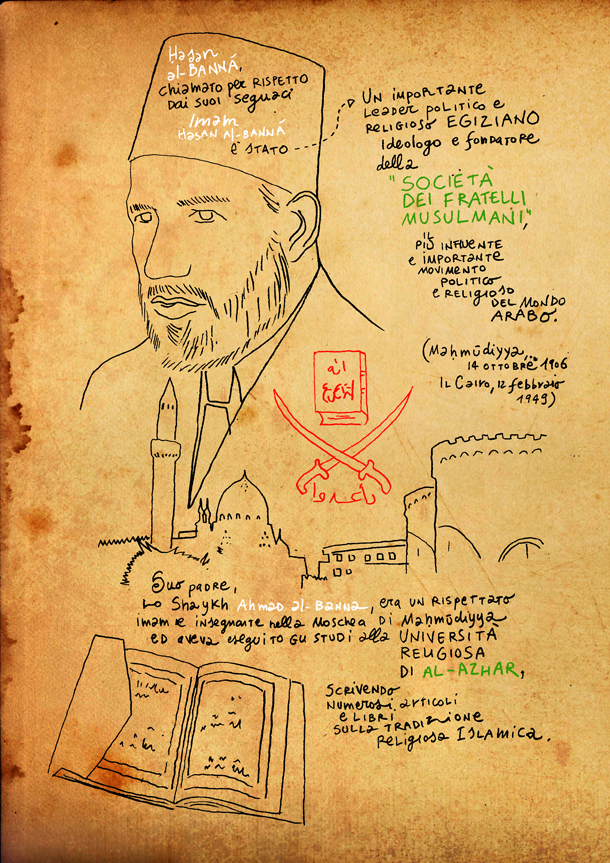 Hasan
al-BANNÁ,
chiamato per RISPETTO
DAI SUOI seguaci
Imam
HASAN Al-BANNÁ
è STATO
UN IMPORTANTE
Leader politico e
RELIGIOSO EGIZIANO
Ideologo e fondatore
della
"SOCIETÀ
DEI FRATELLI
MUSULMANI",
IL
PIÙ INFLUENTE
e IMPORTANTE
MOVIMENTO
POLITICO
e RELIGIOSO
DEL MONDO
ARABO.
(Mahmūdiyya,
14 OTTOBRE 1906
IL Cairo, 12 febbraio
1949)
و أعدوا
Suo padre,
Lo Shaykh Ahmad al-Banna, era UN RISPETTATO
imam e insegnante nella Moschea DI Mahmūdiyya
ED aveva eseguito GLI STUDI alla UNIVERSITÀ
RELIGIOSA
DI AL-AZHAR,
SCRIVENDO
NUMEROSI articoli
e LIBRI
SULLA TRADIZIONE
Religiosa Islamica.